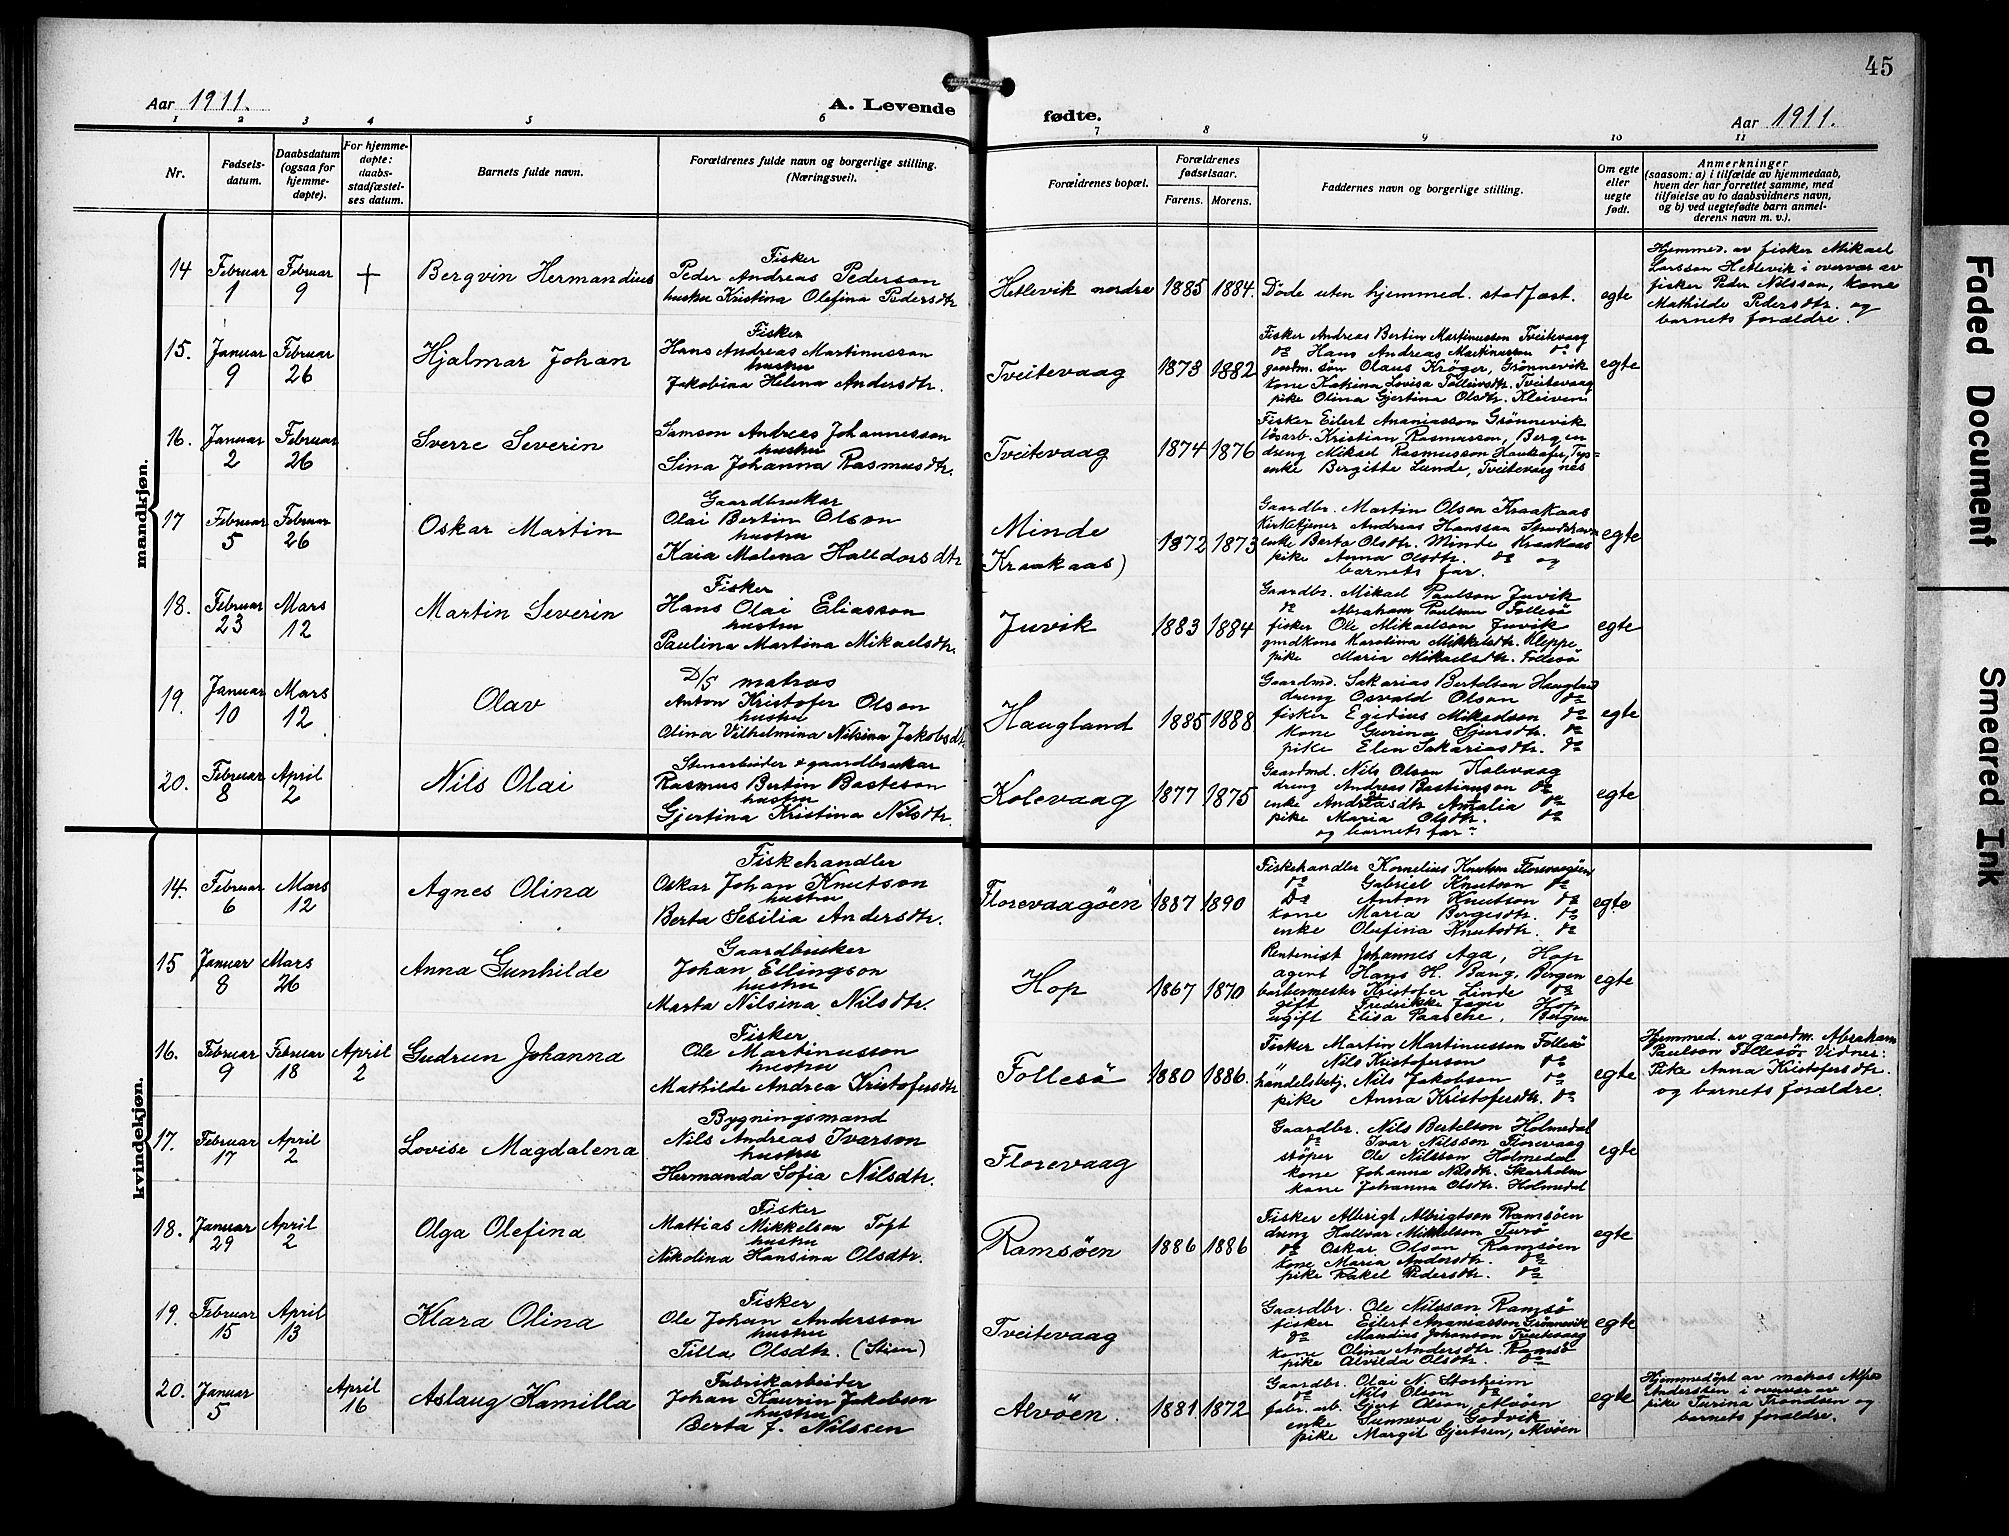 45
Aar 1911.
A. Levende
fødte.
Aar 1911.
1 2 3 4 5 6 7 8 9 10 11
Nr.
Fødsels-
datum.
Daabsdatum
(ogsaa for
hjemme-
døpte).
For hjemme-
døpte:
daabs-
stadfæstel-
ses datum.
Barnets fulde navn.
Forældrenes fulde navn og borgerlige stilling.
(Næringsvei).
Forældrenes bopæl.
Forældrenes
fødselsaar.
Farens. Morens.
Faddernes navn og borgerlige stilling.
Om egte
eller
uegte
født.
Anmerkninger
(saasom: a) i tilfælde av hjemmedaab,
hvem der har forrettet samme, med
tilføielse av to daabsvidners navn,
og b) ved uegtefødte barn anmel-
derens navn m. v.).
mandkjøn.
14 Februar 1 Februar 9 + Bergvin Hermandius
Fisker
Peder Andreas Pederson
hustru Kristina Olefina Pedersdtr
Hetlevik nordre 1885 1884.
Døde uten hjemmed. stadfæst.
egte
Hjemmed. av fisker Mikael
Larsson Hetlevik i overvær av
fisker Peder Nilsson, kone
Mathilde Pedersdtr. og
barnets forældre.
15. Januar 9 Februar 26 Hjalmar Johan
Fisker
Hans Andreas Martinusson
hustru
Jakobina Helena Andersdtr.
Tveitevaag 1873 1882
Fisker Andreas Bertin Martinusson Tveitevaag
do Hans Andreas Martinusson do
gaardm. søn Olaus Krøger, Grønnevik
kone Katrina Lovisa Tolleivsdtr. Tveitevaag
pike Olina Gjertina Olsdtr. Kleiven
egte
16. Januar 2 Februar 26 Sverre Severin
Samson Andreas Johannesson
hustru
Sina Johanna Rasmusdtr.
Tveitevaag 1874 1876
Fisker Eilert Ananiasson Grønnevik
løsarb. Kristian Rasmusson, Bergen
dreng Mikael Rasmusson
enke Bergitte Lunde, Tveitevaag
17 Februar 5 Februar 26 Oskar Martin
Gaardbruker
Olai Bertin Olson
hustru
Kaia Malena Halldorsdtr
Minde
(Kraakaas) 1872 1873
Gaardbr. Martin Olson Kraakaas
Kirketjener Andreas Hansson
enke Berta Olsdtr. Minde Kraakaas
pike Anna Olsdtr. do og
barnets far.
egte
18. Februar 23 Mars 12 Martin Severin
Fisker
Hans Olai Eliasson
hustru
Paulina Martina Mikaelsdtr.
Juvik 1883 1884
Gaardbr. Mikael Paulson Juvik
do Abraham Paulson Follesø
fisker Ole Mikaelson Juvik
gmdkone Karolina Mikkelsdtr. Kleppe
pike Maria Mikaelsdtr. Follesø
egte
19. Januar 10 Mars 12 Olav
D/S matros
Anton Kristofer Olson
hustru
Olina Vilhelmina Nilsina Jakobsdtr
Haugland 1885 1888
Gaardmd. Sakarias Bertelson Haugland
dreng Osvald Olson do
fisker Egidius Mikaelson do
kone Gurina Sjursdtr. do
pike Elen Sakariasdtr. do
egte
20. Februar 8 April 2 Nils Olai
Stenarbeider & gaardbruker
Rasmus Bertin Basteson
hustru
Gjertina Kristina Nilsdtr.
Kolevaag 1877 1875
Gaardmd. Nils Olson Kolevaag
dreng Andreas Bastianson do
enke Andreasdtr Amalia do
pike Maria Olsdtr. do
og barnets far.
egte
kvindekjøn.
14. Februar 6 Mars 12 Agnes Olina
Fiskehandler
Oskar Johan Knutson
hustru
Berta Sesilia Andersdtr.
Florevaagøen 1887 1890
Fiskehandler Kornelius Knutson Florevaagøen
do Gabriel Knutson do
Do Anton Knutson do
kone Maria Bergesdtr. do
enke Olefina Knutsdtr. do
egte
15 Januar 8 Mars 26 Anna Gunhilde
Gaardbruker
Johan Ellingson
hustru
Marta Nilsina Nilsdtr.
Hop 1867 1870
Rentenist Johannes Aga, Hop
agent Hans H. Bang, Bergen
barbermester Kristofer Linde do
gift Fredrikke Jager Hop
ugift Elisa Paasche, Bergen
egte
16. Februar 9 Februar 18 April 2 Gudrun Johanna
Fisker
Ole Martinusson
hustru
Mathilde Andrea Kristofersdtr
Follesø 1880 1886.
Fisker Martin Martinusson Follesø
Nils Kristoferson do
handelsbetj. Nils Jakobson do
pike Anna Kristofersdtr. do
egte
Hjemmed. av gaardm. Abraham
Paulson Follesø. Vidner:
Pike Anna Kristofersdtr.
og barnets forældre.
17. Februar 17 April 2 Lovise Magdalena
Bygningsmand
Nils Andreas Ivarson
hustru
Hermanda Sofia Nilsdtr.
Florevaag
Gaardbr. Nils Bertelson Holmedal
do Ivar Nilsson Florevaag
støper Ole Nilsson Holmedal
kone Johanna Nilsdtr. Skarholm
kone Johanna Olsdtr. Holmedal
egte
18. Januar 29 April 2 Olga Olefina
Fisker
Mattias Mikkelson Toft
hustru
Nikolina Hansina Olsdtr.
Ramsøen 1886 1886
Fisker Albrigt Albrigtson Ramsøen
dreng Hallvar Mikkelson Turø
do Oskar Olson Ramsøen
kone Maria Andersdtr. do
pike Rakel Pedersdtr. do
egte
19. Februar 15 April 13 Klara Olina
Fisker
Ole Johan Andersson
hustru
Tilla Olsdtr. (Stien)
Tveitevaag
Gaardbr. Ole Nilsson Ramsø
fisker Eilert Ananiasson Grønnevik
do Mandius Johanson Tveitevaag
kone Olina Andersdtr. Ramsø
pike Alvilda Olsdtr. do
egte
20. Januar 5 April 16 Aslaug Kamilla
Fabrikarbeider
Johan Kaurin Jakobson
hustru
Berta J. Nilssen
Alvøen. 1881 1872
Gaardbr. Olai N. Storheim
do Nils Olson do
fabr. arb. Gjert Olson Alvøen
enke Sunneva Godvik
pike Margit Gjertsen, Alvøen
egte
Hjemmedøpt av
Andersten i overvær av
pike Turina Trondsen og
barnets forældre.
Faded Document
Smeared Ink